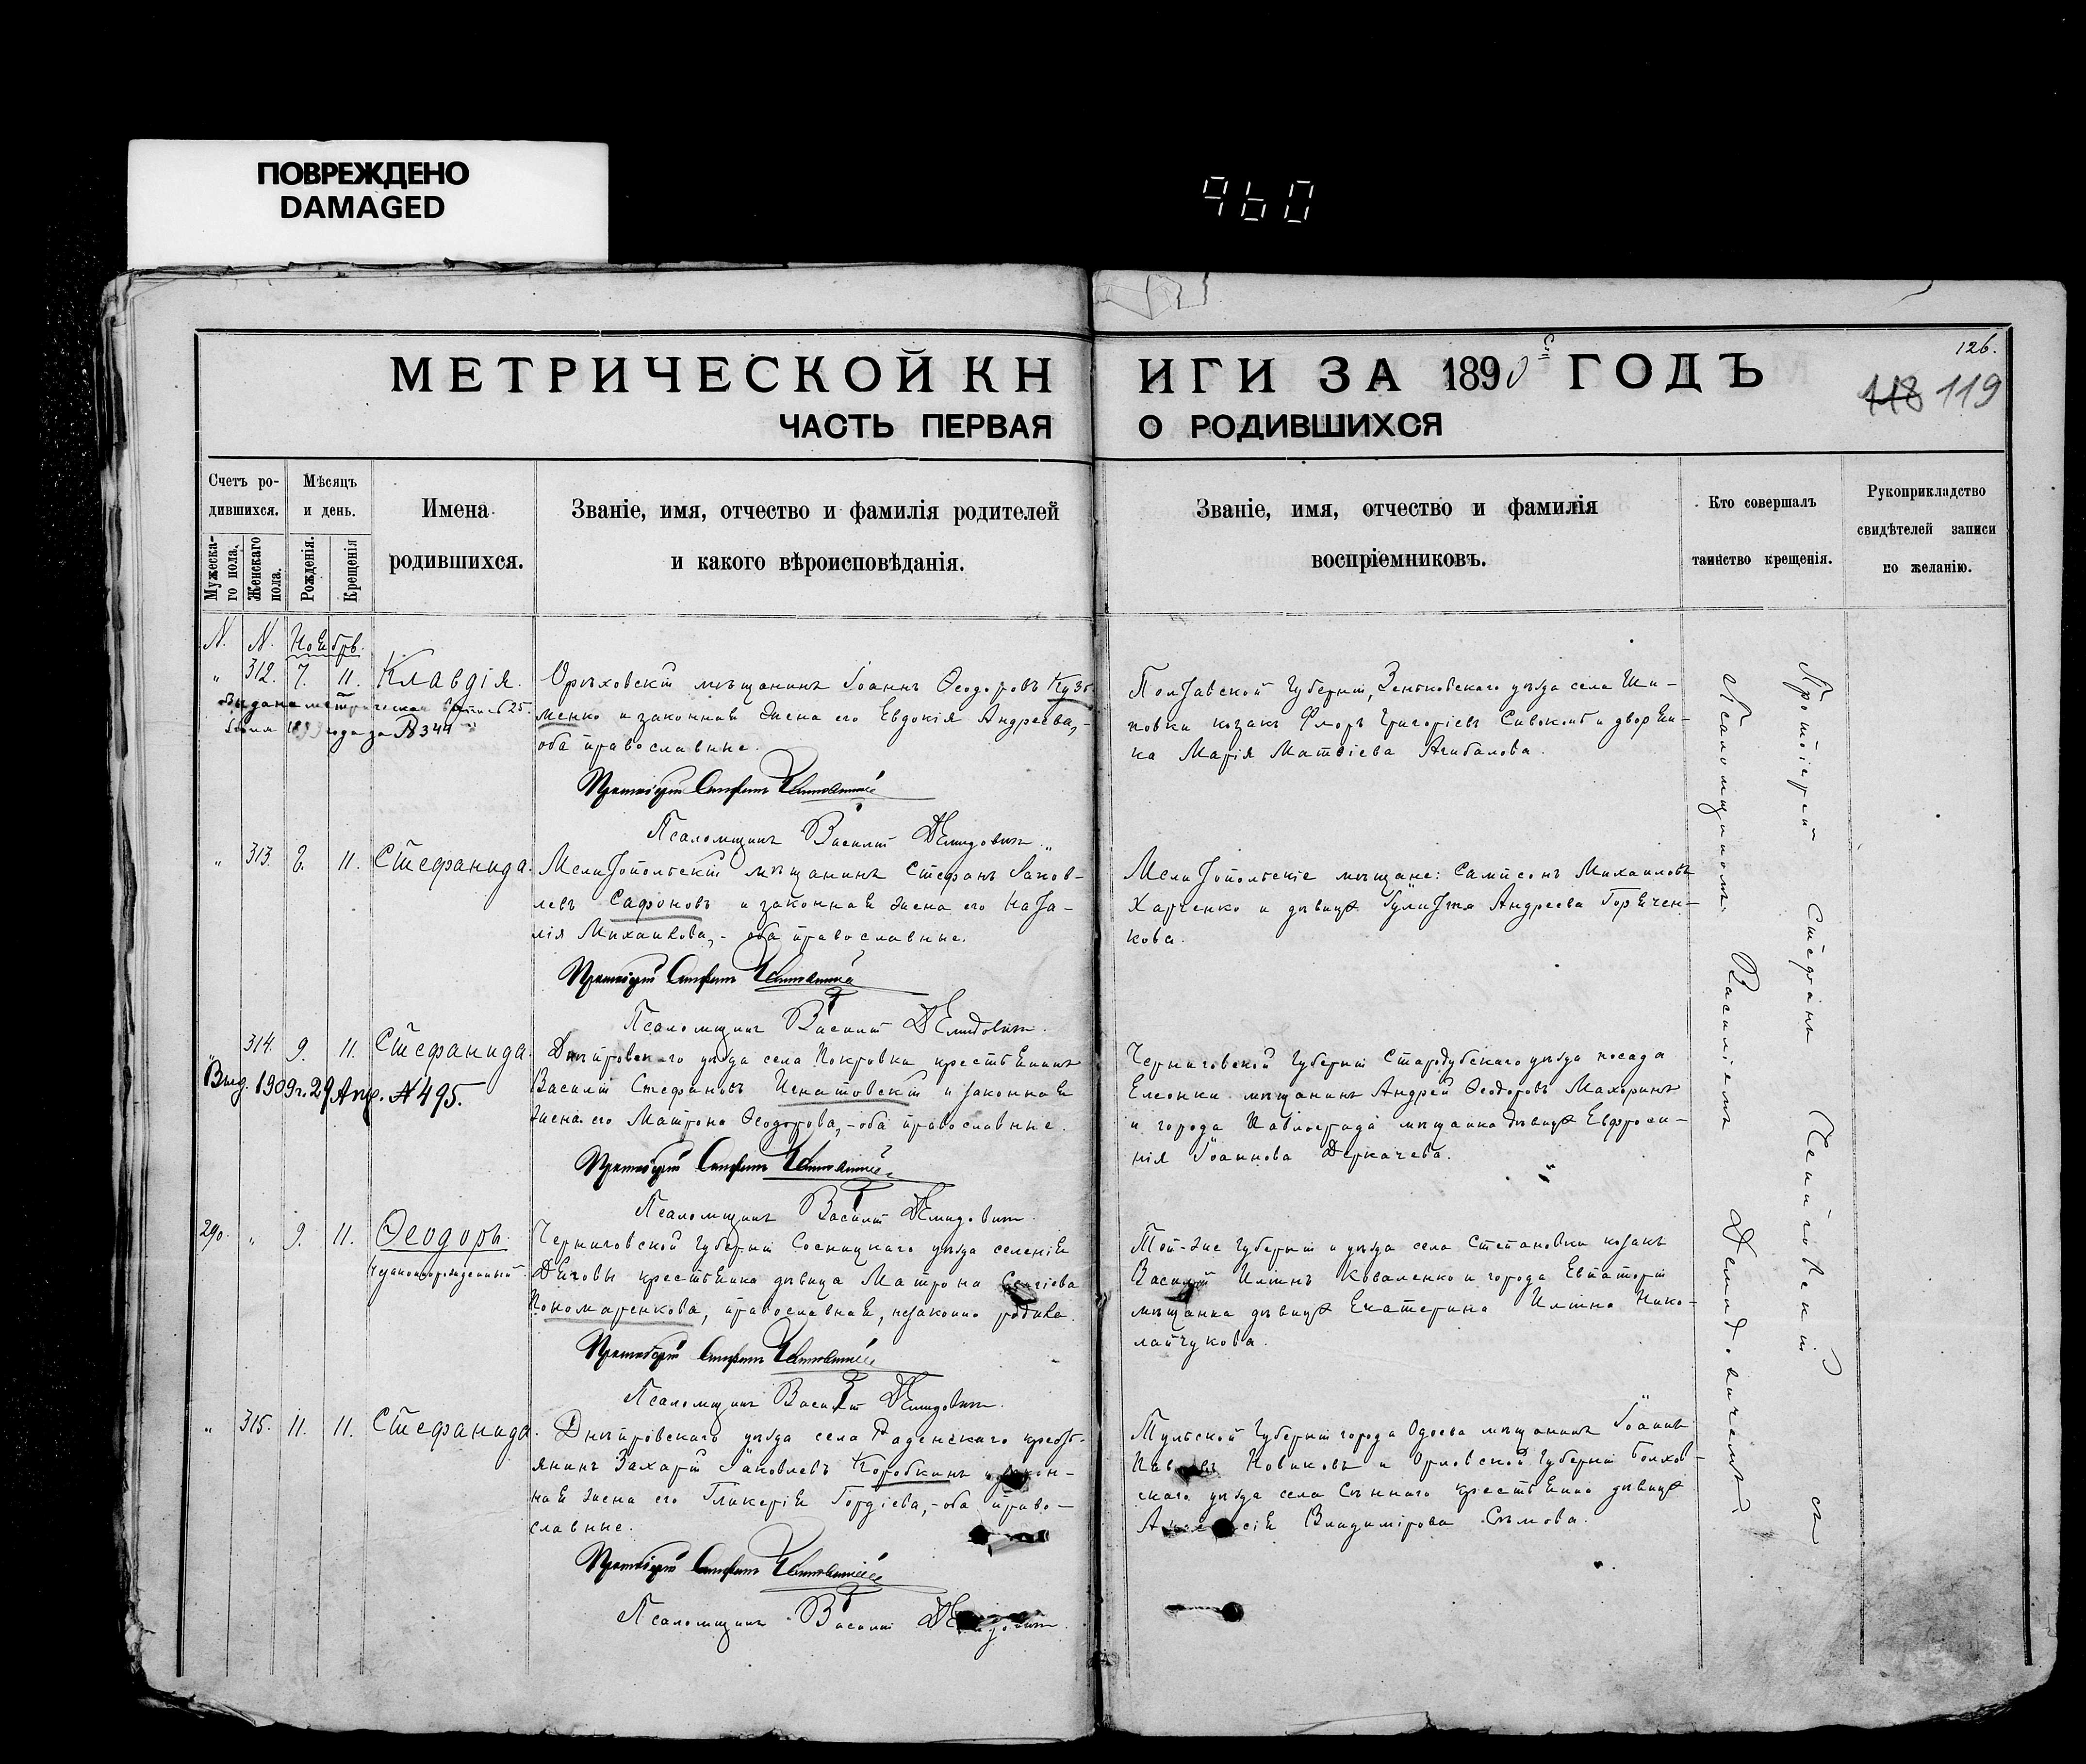 ПОВРЕЖДЕНО
DAMAGED
960
МЕТРИЧЕСКОЙ КНИГИ ЗА 1890 ГОДЪ
126.
118 119
ЧАСТЬ ПЕРВАЯ О РОДИВШИХСЯ
Счетъ ро-
дившихся.
Мужеска-
го пола.
Женскаго
пола.
Мѣсяцъ
и день.
Рожденія.
Крещенія
Имена
родившихся.
Званіе, имя, отчество и фамилія родителей
и какого вѣроисповѣданія.
Званіе, имя, отчество и фамилія
воспріемниковъ.
Кто совершалъ
таинство крещенія.
Рукоприкладство
свидѣтелей записи
по желанію.
N. N. Ноябрь.
" 312. 7. 11. Клавдія.
Орѣховскій мѣщанинъ Іоаннъ Ѳеодоровъ Кузь-
менко и законная жена его Евдокія Андреева,-
оба православные.
Протоіерей Стефанъ
Псаломщикъ Василій Демидовичъ
Полтавской губерніи, Зеньковскаго уѣзда села Ши-
повки козакъ Флоръ Григоріевъ и дворян-
ка Марія Матвіева Агибалова.
" 313. 8. 11. Стефанида.
Мелитопольскій мѣщанинъ Стефанъ Іаков-
левъ Сафоновъ и законная жена его Ната-
лія Михайлова,- оба православные.
Протоіерей Стефанъ
Псаломщикъ Василій Демидовичъ.
Мелитопольскіе мѣщане: Сампсонъ Михаиловъ
Харченко и дѣвица Іулитта Андреева Горячен-
кова.
" 314. 9. 11. Стефанида.
Выд. 1909 г. 29 Апр. № 495.
Днѣпровскаго уѣзда села Покровки крестьянинъ
Василій Стефановъ Игнатовскій и законная
жена его Матрона Ѳеодорова,-оба православные.
Протоіерей Стефанъ
Псаломщикъ Василій Демидовичъ.
Черниговской губерніи Стародубскаго уѣзда посада
Елеонки мѣщанинъ Андрей Ѳеодоровъ Махоринъ
и города Павлограда мѣщанка дѣвица Евфроси-
нія Іоаннова Деркачева.
290. " 9. 11. Ѳеодоръ.
Незаконнорожденный
Черниговской губерніи Сосницкаго уѣзда селенія
крестьянка дѣвица Матрона Сергіева
Пономаренкова, православная, незаконно родила.
Протоіерей Стефанъ
Псаломщикъ Василій Демидовичъ.
Той-же губерніи и уѣзда села Степановки козакъ
Василій Илiинъ Коваленко и города Евпаторіи
мѣщанка дѣвица Екатерина Илiина Нико-
лайчукова.
" 315. 11. 11. Стефанида.
Днѣпровскаго уѣзда села Раденскаго кресть-
янинъ Захарій Іаковлевъ Коробкинъ и закон-
ная жена его Гликерія Гордіева,-оба право-
славные.
Протоіерей Стефанъ
Псаломщикъ Василій Демидовичъ.
Тульской губерніи города Одоева мѣщанинъ Іоаннъ
Павловъ Новиковъ и Орловской губерніи Болхов-
скаго уѣзда села Сѣннаго крестьянка дѣвица
Владимірова Сѣмова.
Протоіерей Стефанъ съ
Псаломщикомъ Василіемъ Демидовичемъ.